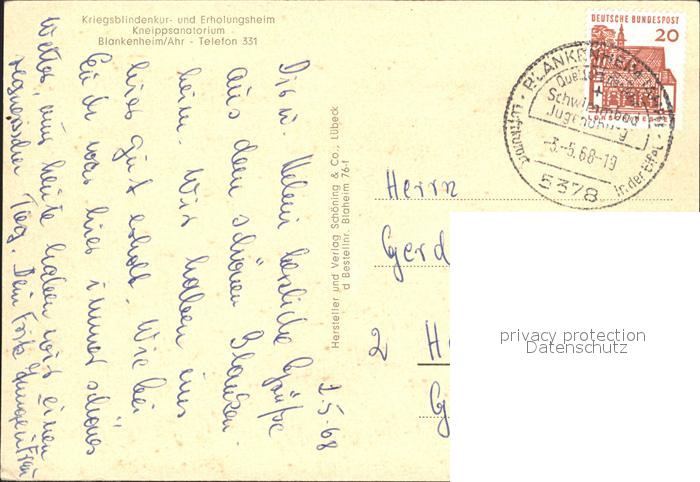 Kriegsblindenkur- und Erholungsheim
Kneippsanatorium
Blankenheim/Ahr - Telefon 331
1.5.68
Dir u. Helmi herzliche Grüße
aus dem schönen Blanken-
heim. Wir haben uns
hier gut erholt. Wie bei
Euch war hier immer schönes
Wetter, nur heute haben wir einen
regnerischen Tag. Dein Fritz
Hersteller und Verlag Schöning & Co., Lübeck
d Bestellnr. Blaheim 76-f
DEUTSCHE BUNDESPOST
20
BLANKENHEIM
Schwimmbad
Jugendburg
-3.-5.68-19
5378
in der Eifel
Luftkurort
Herrn
Gerd
2 H
G
privacy protection
Datenschutz